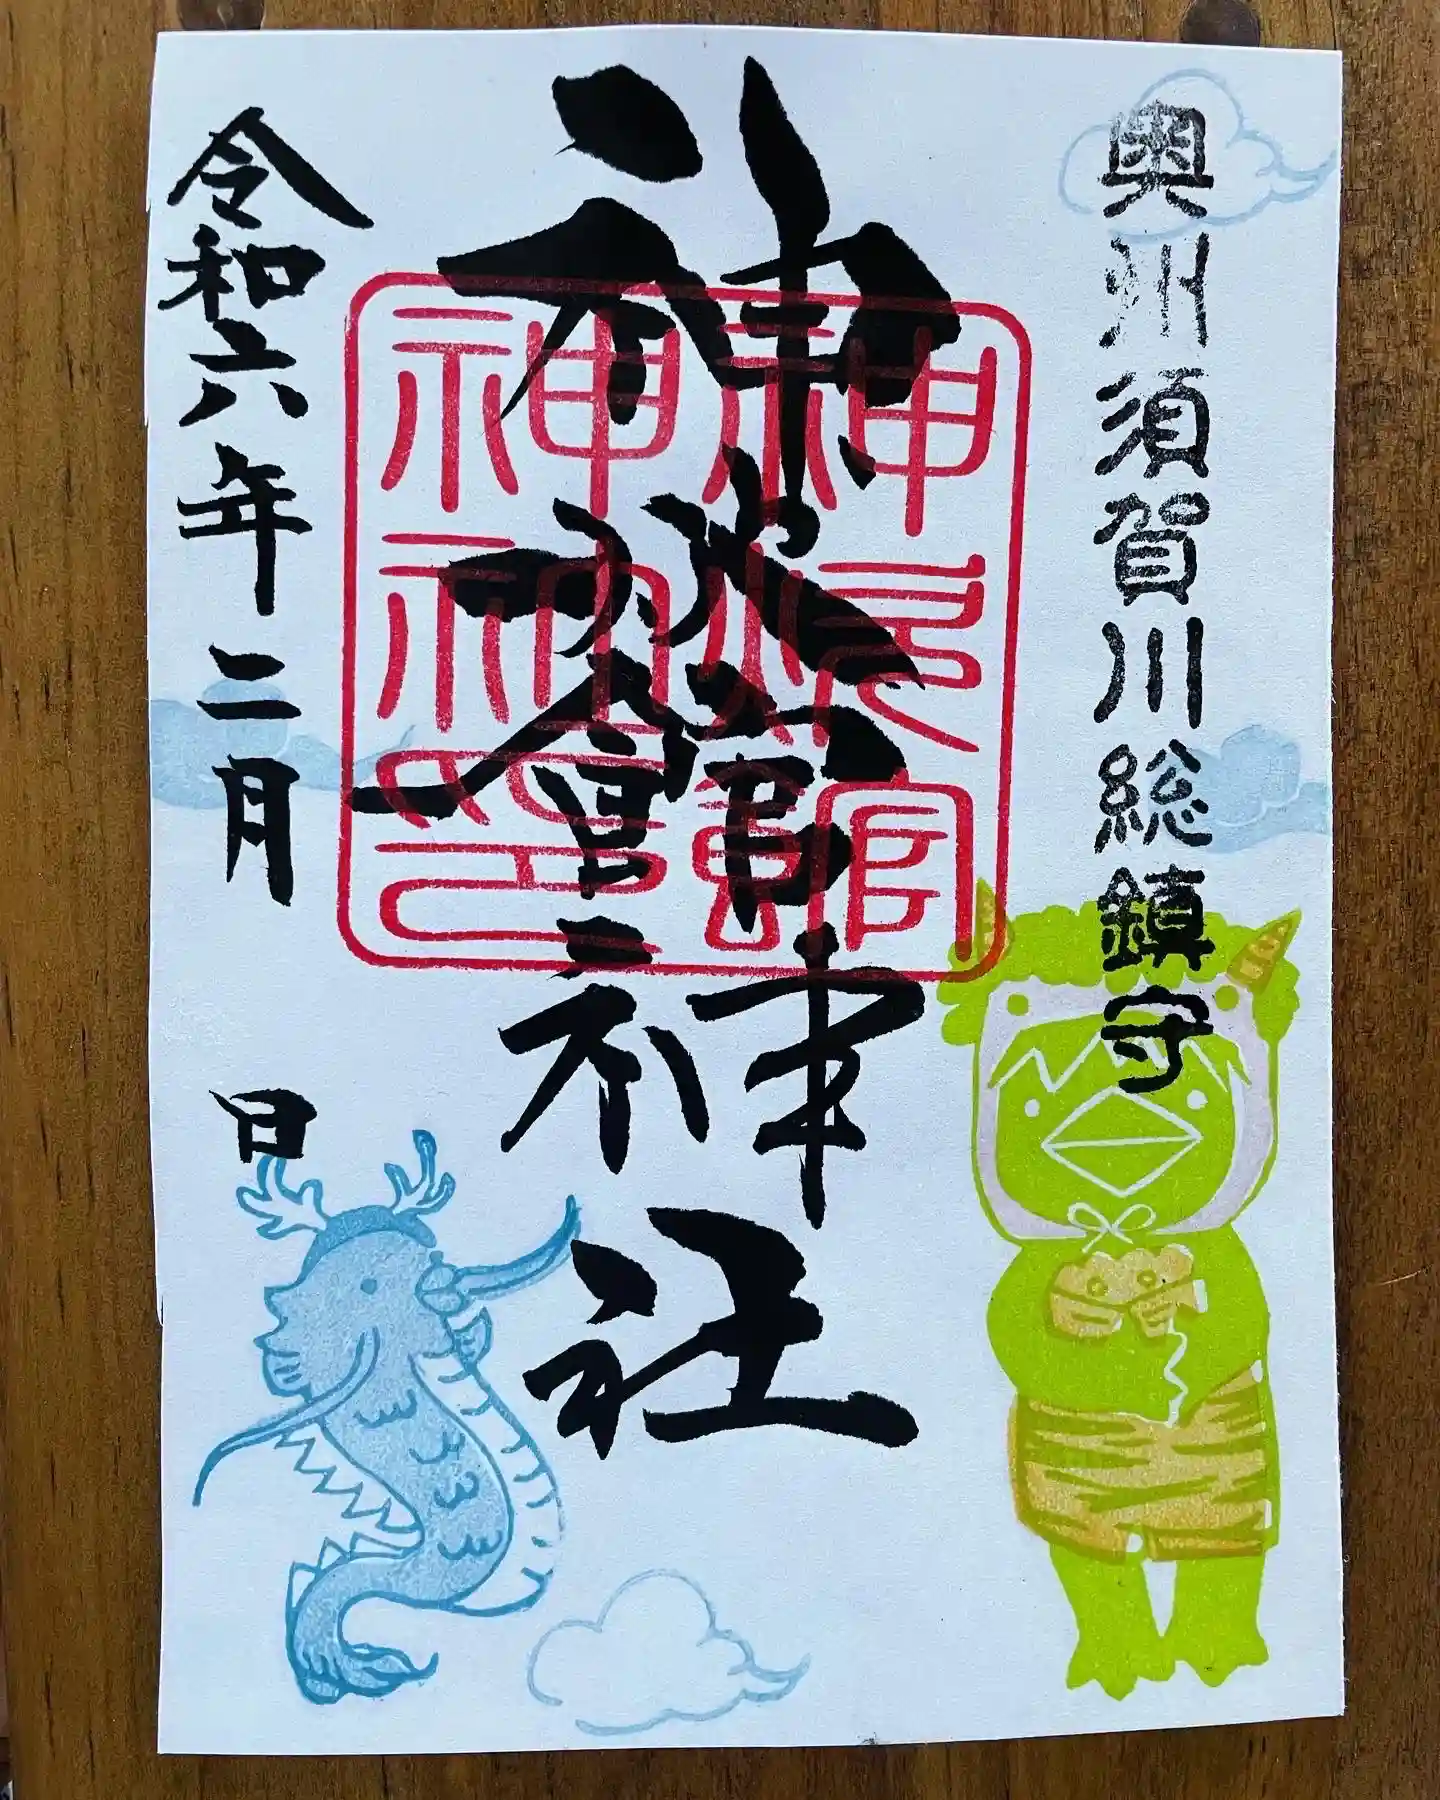 奥州須賀川総鎮守
神炊館神社
神炊館
神社印
令和六年二月　日